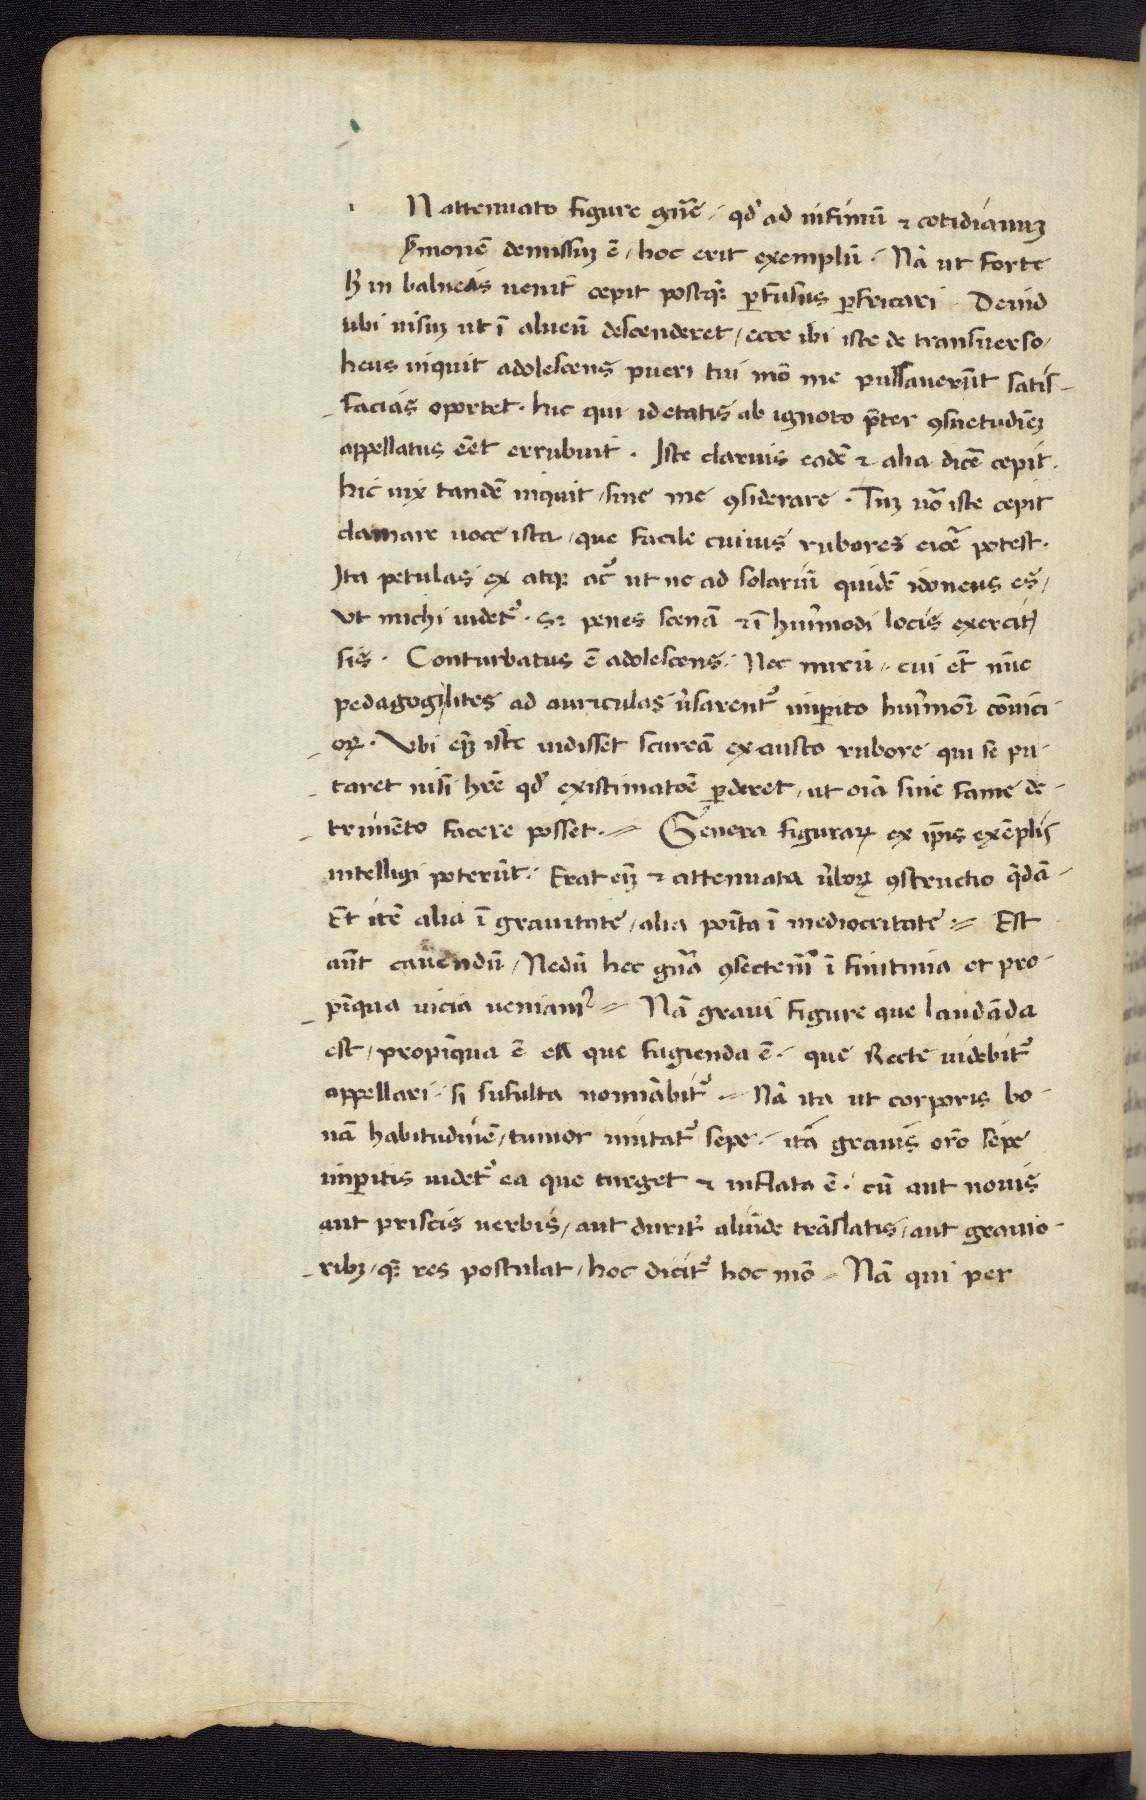 ı N attenuato figure gn̄e, qd̕ ad infimū ⁊ cotidianuꝫ
s̕monē demissuꝫ ē, hoc erit exemplū. Nā ut forte
hꝫ in balneas uenit cepit postq̄ꝫ ꝑfusus ꝑfricari. Deind
ubi uisuꝫ ut ī alueū descenderet, ecce ibi iste de transuerso,
heus inquit adolescens pueri tui mō me pulsauerūt satis-
facias oportet. hic qui id etatis ab ignoto p̄ter ꝯsuetudīeꝫ
appellatus eēt errubuit. Iste clarius eadē ⁊ alia dicē cepit.
hic uix tandē inquit, sine me ꝯsiderare. Tuꝫ uō iste cepit
clamare uoce ista, que facile cuiuis rubores eicē potest.
Ita petulās ex atqꝫ ac̕ ut ne ad solariū quidē idoneus es,
ut michi uidet̕. Sꝫ penes scenā ⁊ ī huī̕modi locis exercit̕
sis. Conturbatus ē adolescens. Nec mirū, cui et̄ nūc
pedagogi lites ad auriculas ūsarent̕ imꝑito huī̕moī cōuici
oꝝ. Vbi eī̄ꝫ iste uidisset scurrā exausto rubore qui se pu-
taret nisi hr̄e qd̕ existimatōē ꝑderet, ut oīa sine fame de-
trimēto facere posset. Genera figuraꝝ ex ip̄is exēplis
intelligi poterūt. Erat eīꝫ ⁊ attenuata ūboꝝ ꝯstructio q̄dā
Et itē alia ī grauitate, alia poīta ī mediocritate. Est
aūt cauendū, Nedū hec gn̄a ꝯsectem̕ ī finitima et pro-
pīqua uicia ueniam̕. Nā graui figure que laudāda
est, propīqua ē ea que fugienda ē. que Recte uidebit̕
appellari. si sufulta nomīabit̕. Nā ita ut corporis bo-
nā habitudinē, tumor imitat̕ sepe. ita grauis orō sepe
imꝑitis uidet̕ ea que turget ⁊ inflata ē. cū aut nouis
aut priscis uerbis, aut durit̕ aliūde trāslatis, aut grauio-
ribꝫ, q̄ꝫ res postulat, hoc dicit̕ hoc mō. Nā qui per